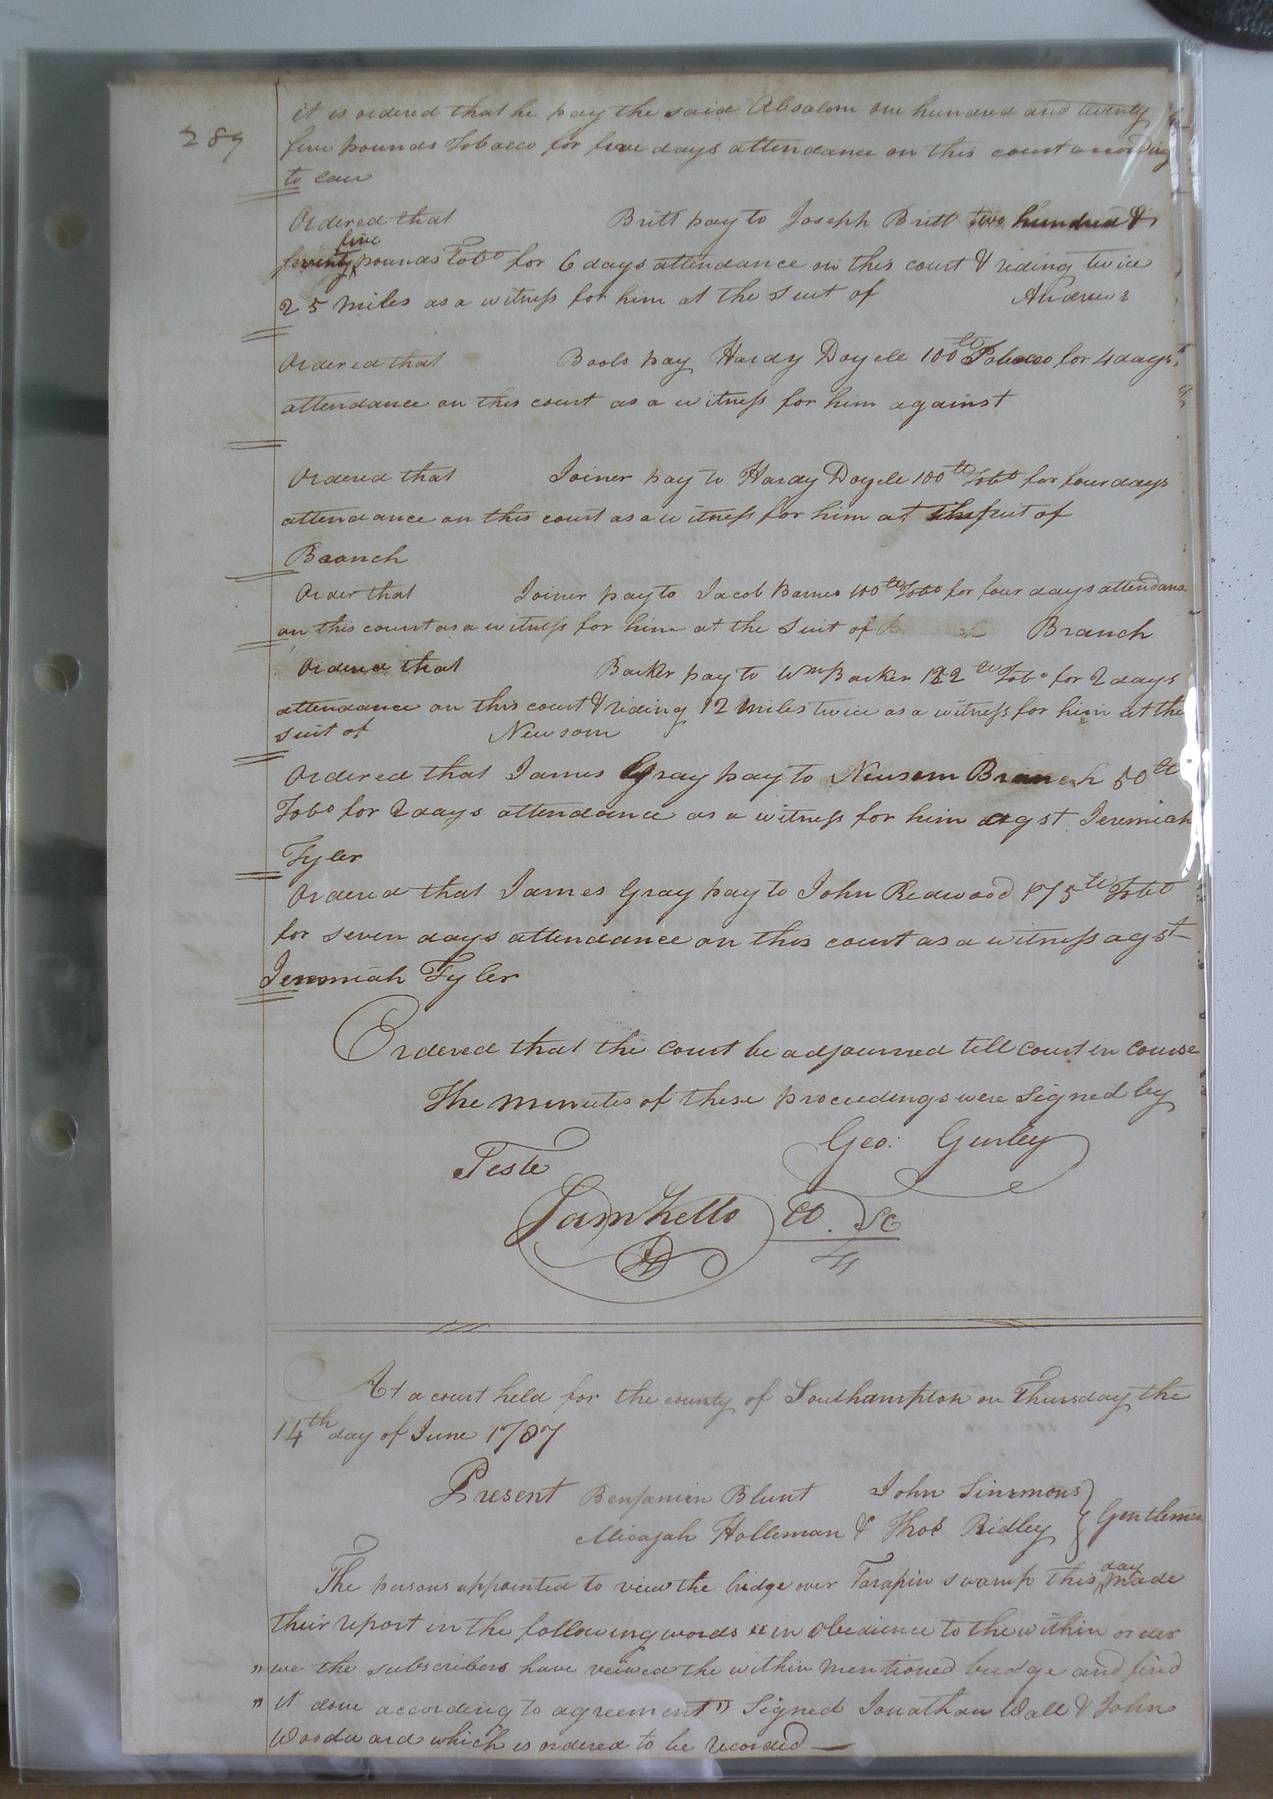 289
it is ordered that he pay the said Absalom one hundred and twenty
five pounds Tobacco for five days attendance on this court according
to law
Ordered that Britt pay to Joseph Britt two hundred &
seventy five pounds Tobo for 6 days attendance on this court & riding twice
25 miles as a witness for him at the suit of Andrews
Ordered that Bools pay Hardy Doyele 100 lb Tobacco for 4 days
attendance on this court as a witness for him against
Ordered that Joiner pay to Hardy Doyele 100 lb Tobo for four days
attendance on this court as a witness for him at the suit of
Branch
Order that Joiner pay to Jacob Barnes 100 lb Tobo for four days attendance
on this court as a witness for him at the suit of Branch
Ordered that Barker pay to Wm Barker 122 lb Tobo for 2 days
attendance on this court & riding 12 miles twice as a witness for him at the
suit of Newsom
Ordered that James Gray pay to Newsom Branch 50 lb
Tobo for 2 days attendance as a witness for him agst Jeremiah
Tyler
Ordered that James Gray pay to John Redwood 175 lb Tobo
for seven days attendance on this court as a witness agst
Jeremiah Tyler
Ordered that the court be adjourned till court in course
The minutes of these proceedings were signed by
Geo: Gurley
Teste
Sam Kello
At a court held for the county of Southampton on Thursday the
14th day of June 1787
Present Benjamin Blunt John Simmons
Micajah Holleman & Thos Ridley } Gentlemen
The persons appointed to view the bridge over Tarapin swamp this day made
their report in the following words "in obedience to the within order
" we the subscribers have veiwed the within mentioned bridge and find
" it done according to agreement" Signed Jonathan Wall & John
Woodward which is ordered to be recorded —